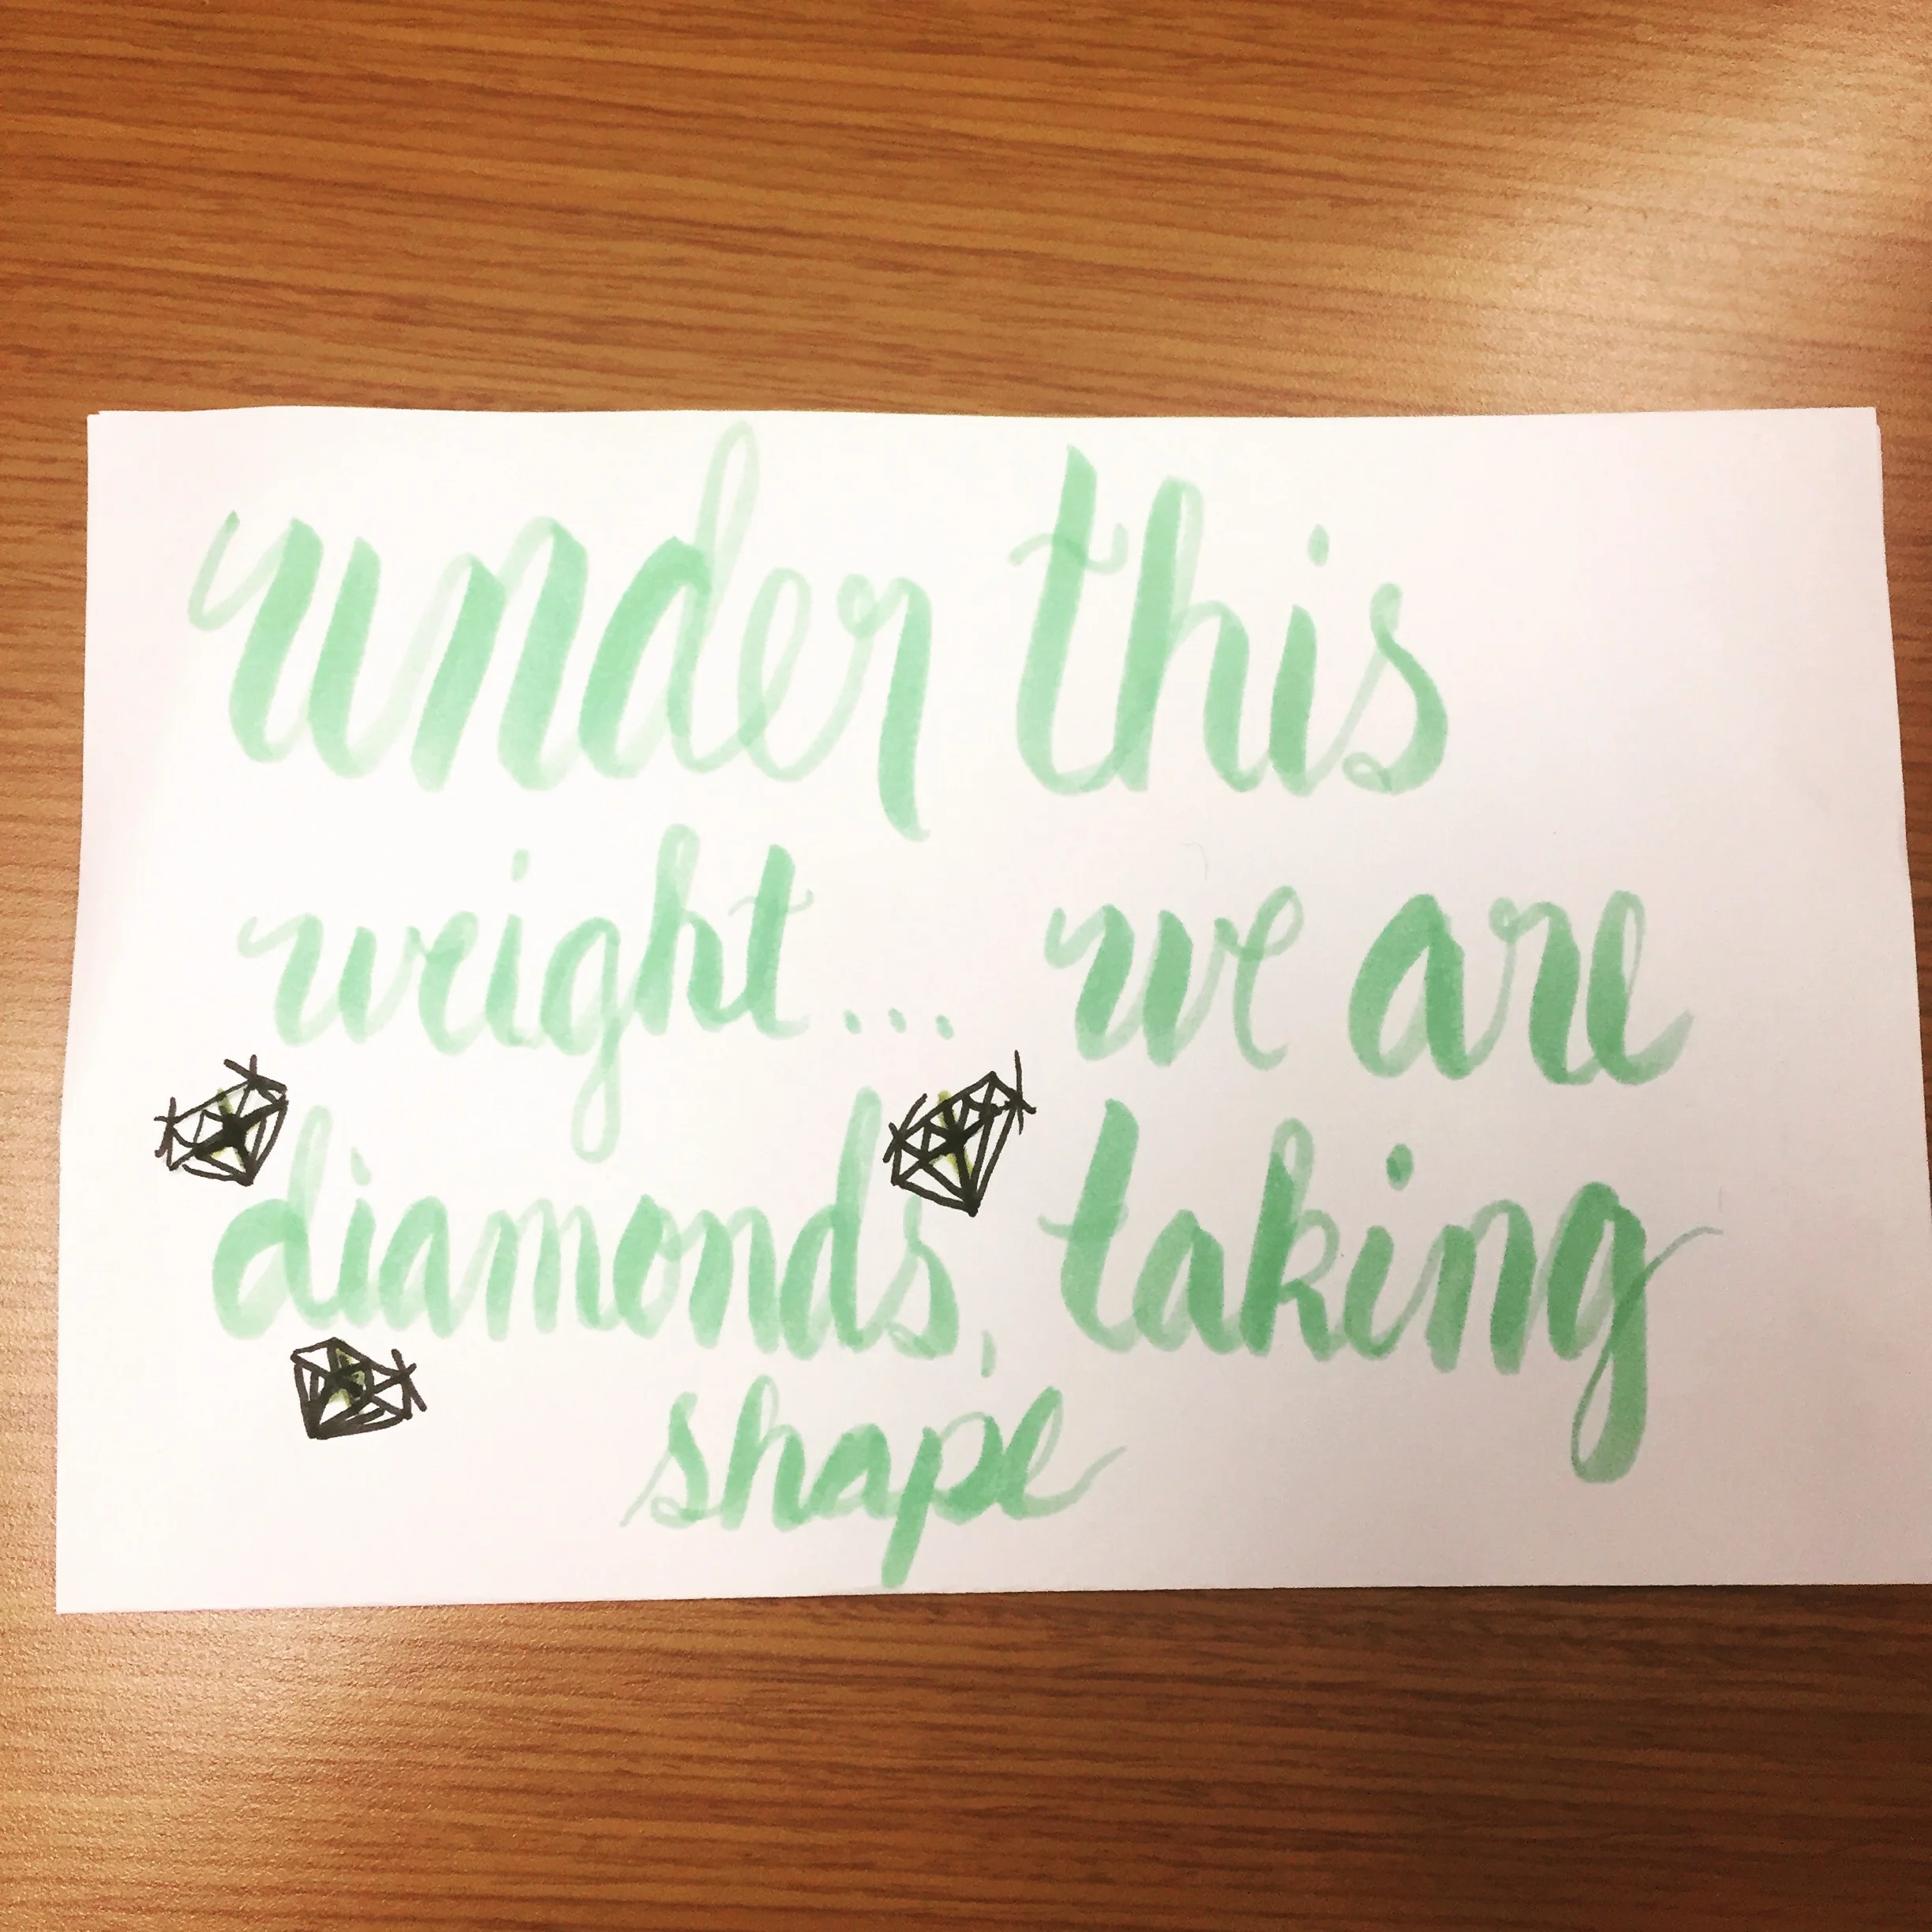 under this
weight... we are
diamonds, taking
shape